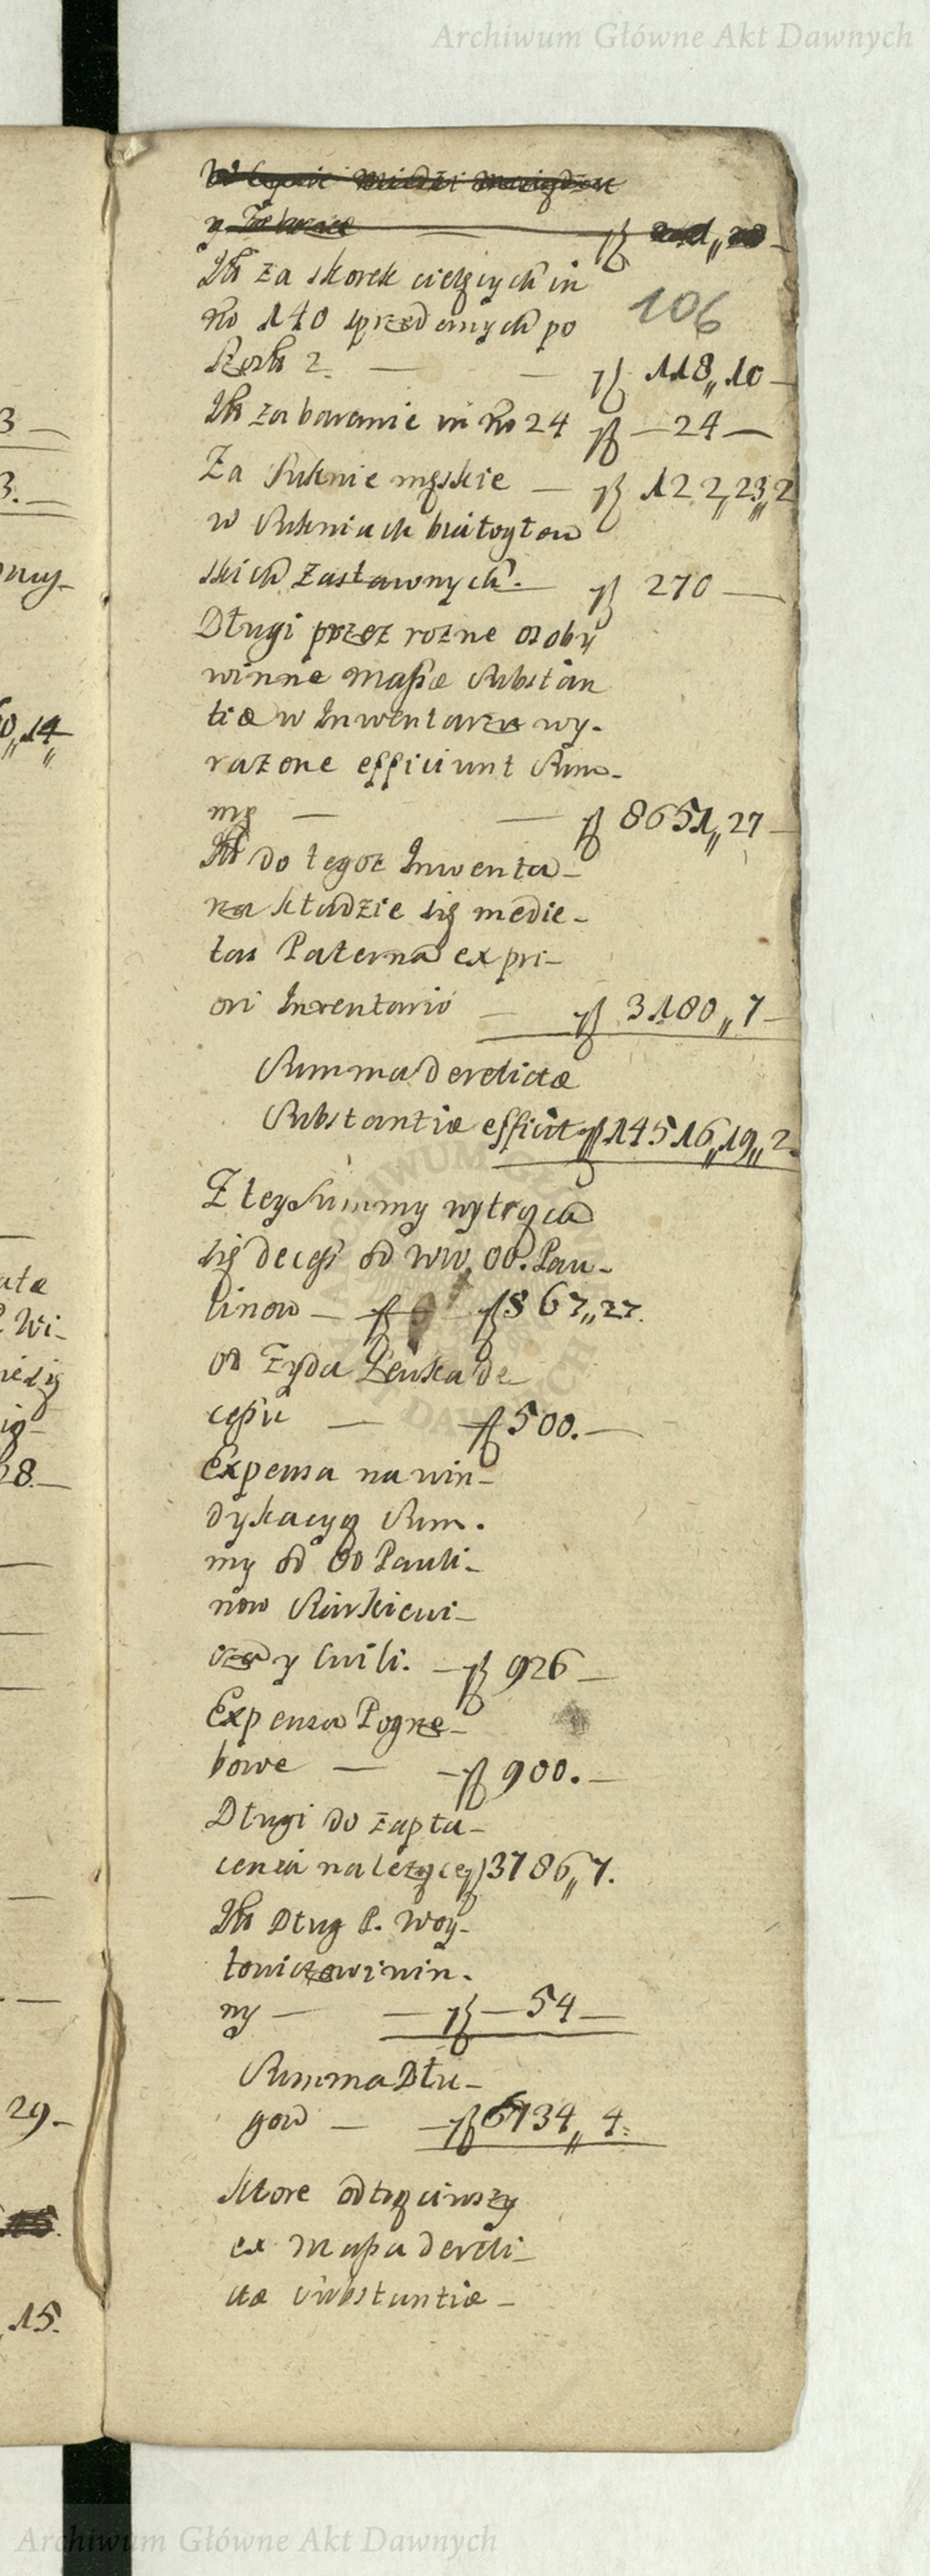 Archiwum Główne Akt Dawnych
W Cynie Miedzi
y Żelazie
It za skorek cielęcych in
nro 140 sprzedanych po
106
118,,10
It za baranie in nro 24 — 24 —
Za Suknie męskie — 122,,23,,2
w Sukniach białogłow
skich Zastawnych. — 270 —
Długi przez rozne osoby
winne massæ Substan
tiæ w Inwentarzu wy-
razone efficiunt Sum-
mę — — 8651,,27 —
It do tegoz Inwenta-
rza kładzie się medie-
tas Paterna ex pri-
ori Inventario — 3180,,7 —
Summa derelictæ
Substantiæ efficit 14516,,19,,2.
Z tey Summy wytrąca
się decess od WW. OO. Pau-
linow — 867,,27.
od Zyda Lewka de
cessu — 500. —
Expensa na win-
dykacyą Sum-
my od OO Pauli-
now
y Cwili. — 926 —
Expensa Pogrze-
bowe — — 900. —
Długi do zapła-
cenia nalezące 3786,,7.
It Dług P. Woy-
towiczowi win-
ny — — 54 —
Summa Dłu-
gow — — 6734,, 4.
ktore odtrąciwszy
ex massa dereli-
ctæ substantiæ —
3 —
3. —
14
atæ
Wi-
8. —
29. —
15.
Archiwum Główne Akt Dawnych